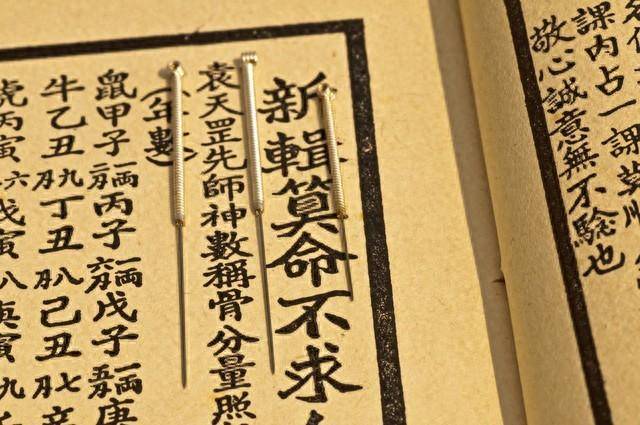 課內占一課
敬心誠意無不騐也
新輯算命不求
袁天罡先師神數稱骨分量照
(年數)
鼠甲子一兩二刄丙子一兩六刄戊子一兩五刄庚
牛乙丑九刄丁丑八刄己丑七刄辛
虎丙寅六戊寅八庚寅九